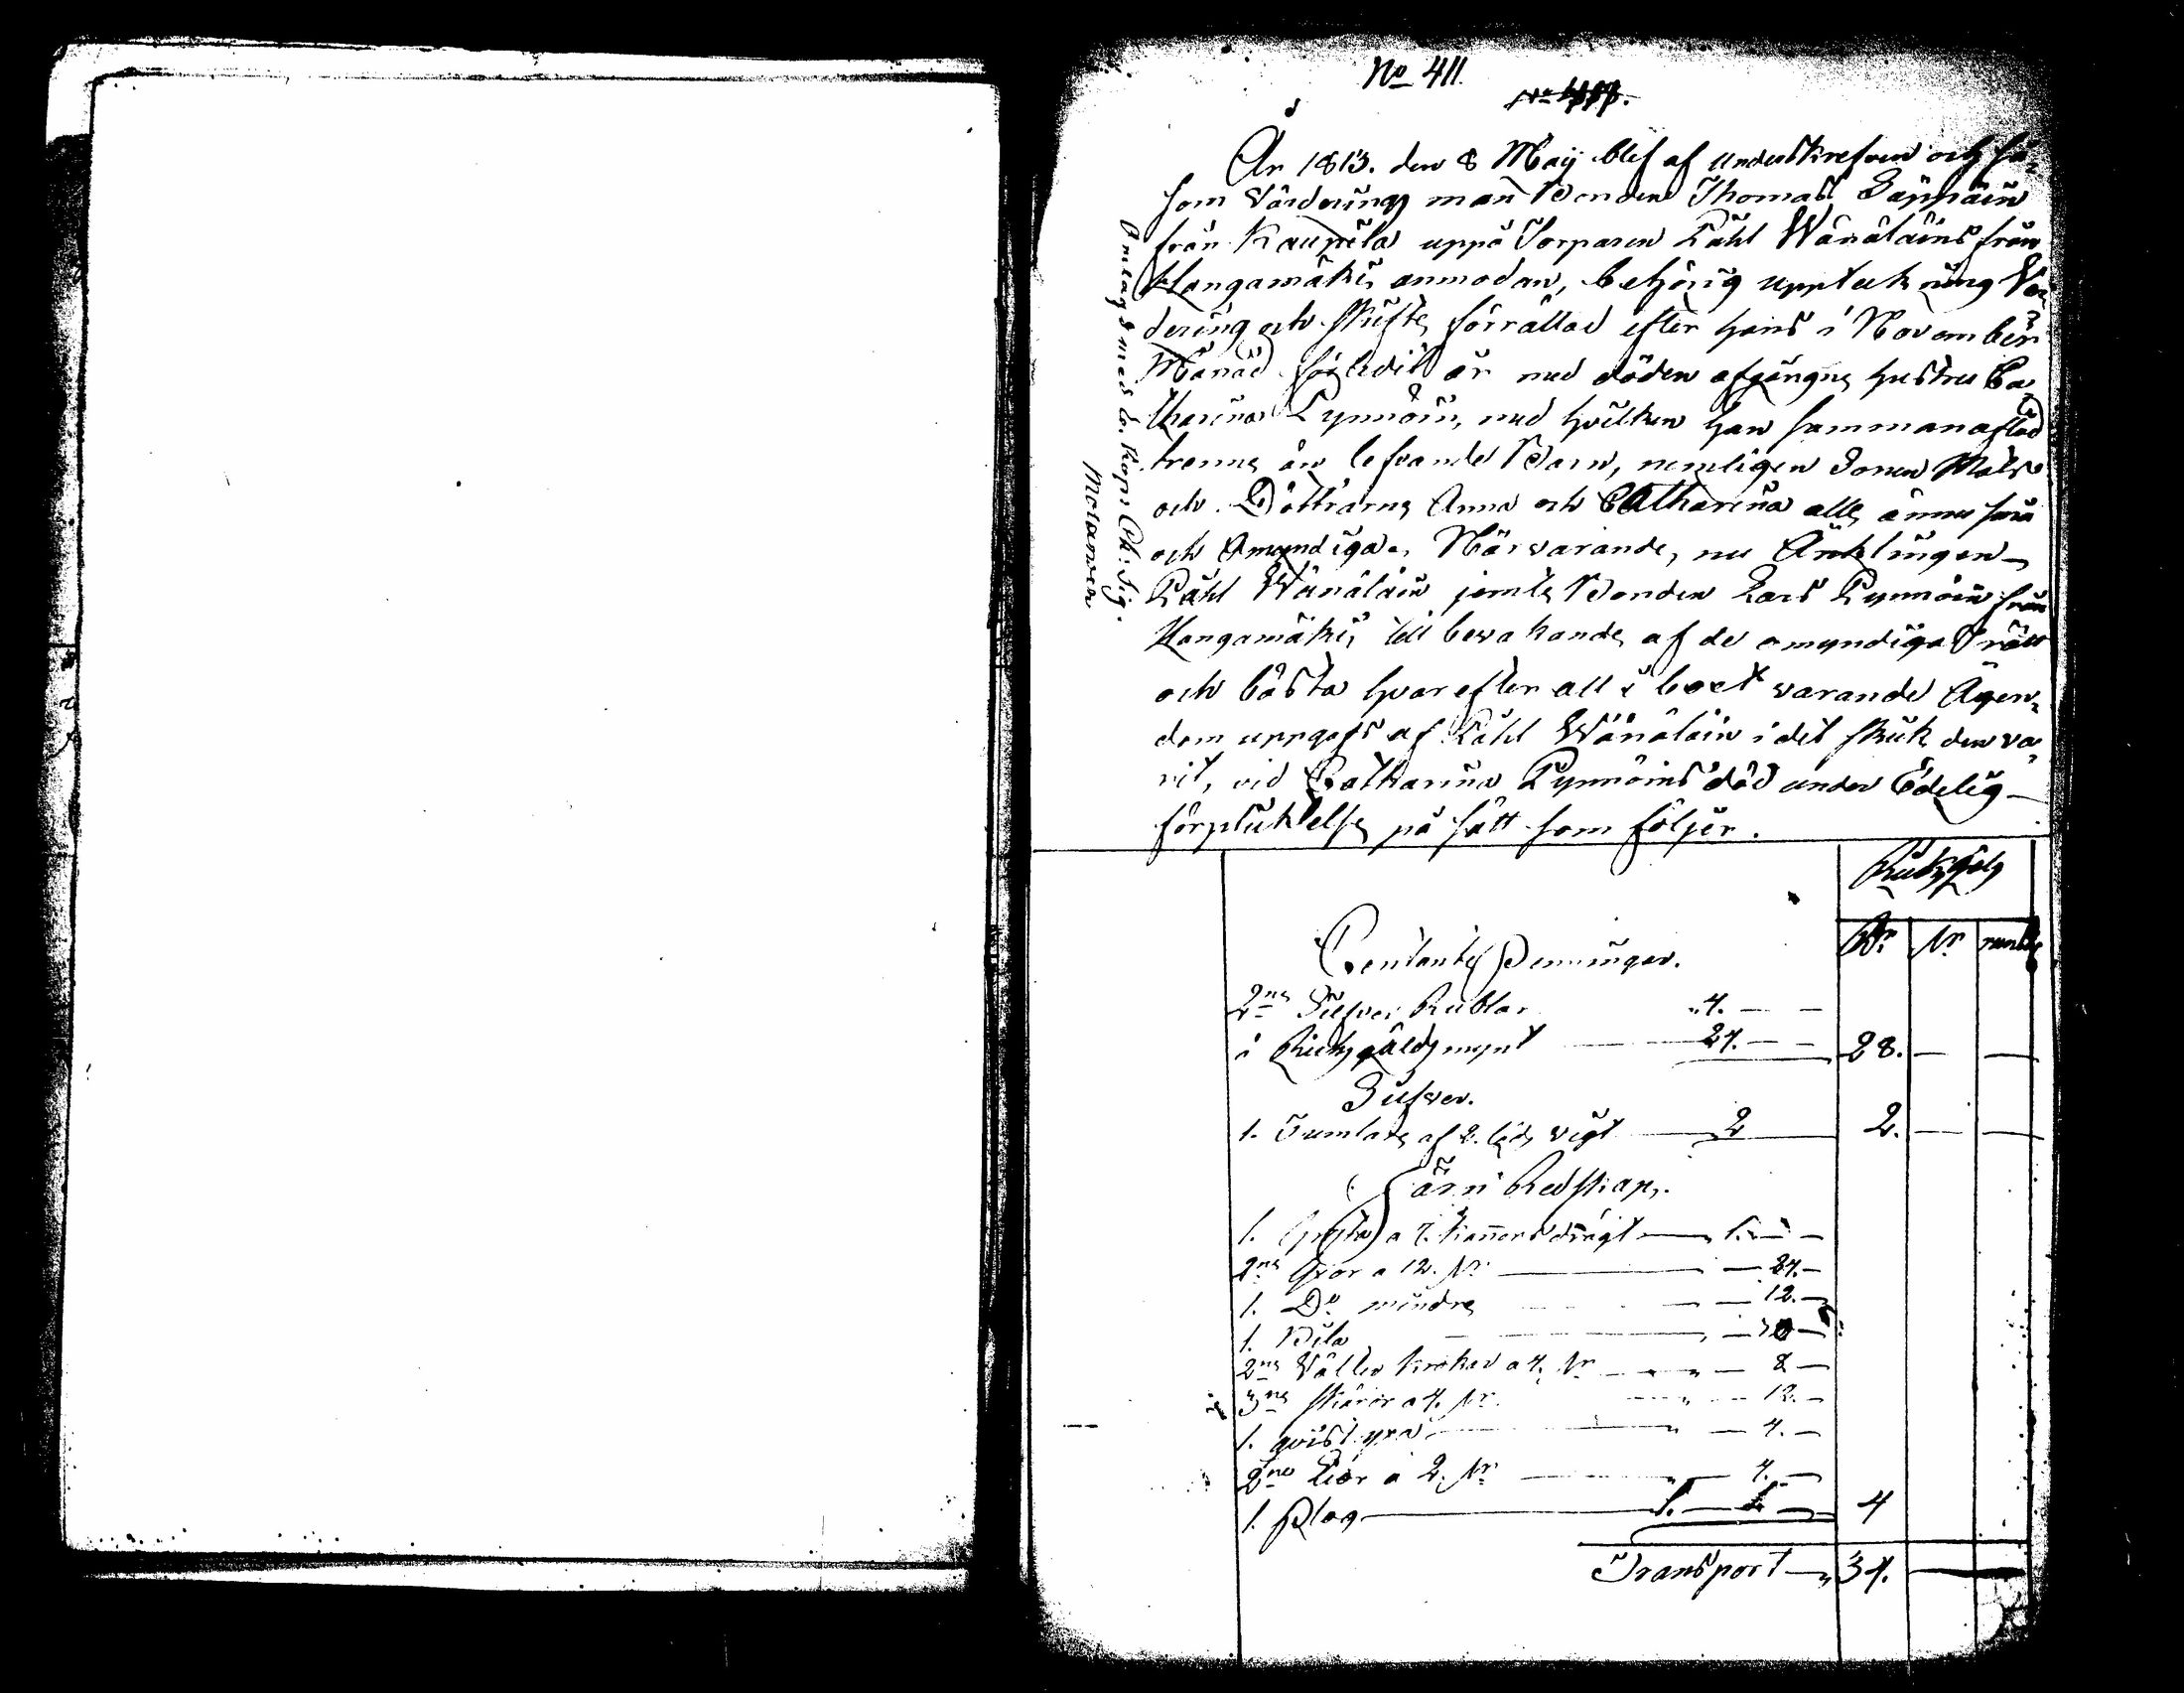 No 411.
År 1813. den 8 Maij blef af underskrefven och så,
som värderings man Bonden Thomas Säppäin
från Kaupila uppå Torparen Påhl Wänäläins från
Kangamäki anmodan, behörig uppteckning Vär
dering och skifte förrättad efter hans i November
Månad förledit år med döden afgångne hustru Ca
tharina Pynnöin, med hvilken han sammanaflad
trenne än lefvande Barn, nemligen Sonen Mats
och Döttrarne Anna och Catharina alle ännu små
och Omyndiga. Närvarande, nu Änklingen
Påhl Wänäläin jemte Bonden Lars Pynnöin från
Kangamäki till bevakande af de omyndigas rätt
och bästa hvarefter all i boet varande Ägen,
dom uppgafs af Påhl Wänäläin i det skick den va,
rit, vid Catharina Pynnöins död under Edelig
förplicktelse på sätt som följer.
Omlagd med b. Kops Ch: Sig.
Molander
Riksgäls
Rr sr runst
Contante Penningar.
2ne Silfver Rublar 4. — —
i Riksgälds mynt 24. — — 28. — —
Silfver.
1. Tumlare af 2. lods vigt 2 2. — —
Järn Redskap.
1. Gryta a 7. kanors drägt 1. — —
2ne Yxor a 12. sr — 24. —
1. Do mindre — 12. —
1. Bila
2ne Vället krokar a 4. sr — 8 —
3ne skäror a 4. sr — 12. —
1. qvist yxa — 4. —
2ne Liar a 2. sr — 4. —
1. Plog 4
Transport 34. —